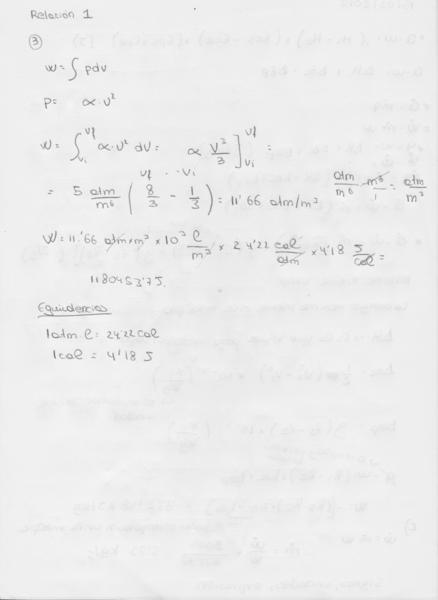 Relación 1
③
W = ∫ p dv
P = α · v²
W = ∫_{Vi}^{Vf} α · v² dV = α V²/3 ]_{Vi}^{Vf} =
= 5 atm/m⁶ ( 8/3 - 1/3 ) = 11'66 atm/m³
Vf Vi
atm/m⁶ m³/1 = atm/m³
W = 11.'66 atm × m³ × 10³ l/m³ × 24'22 cal/atm × 4'18 J/cal =
1180453'75.
Equivalencias
1 atm. l = 24'22 cal
1 cal = 4'18 J